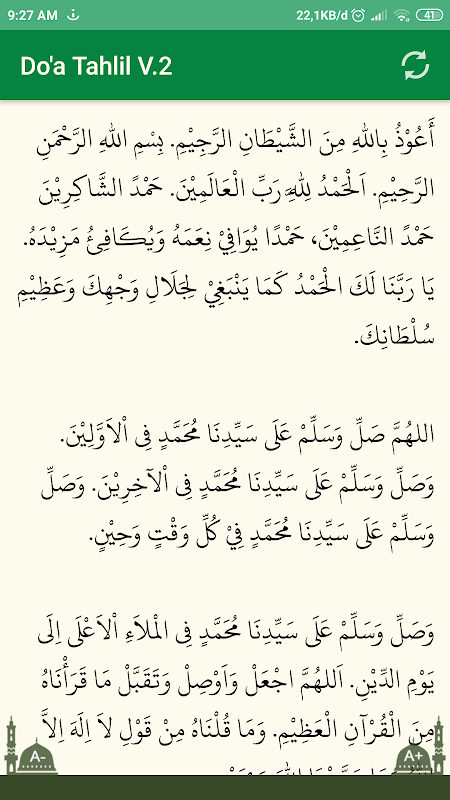 9:27 AM
22,1KB/d
41
Do'a Tahlil V.2
أَعُوْذُ بِاللهِ مِنَ الشَّيْطَانِ الرَّجِيْمِ. بِسْمِ اللهِ الرَّحْمَنِ
الرَّحِيْمِ. اَلْحَمْدُ لِلهِ رَبِّ الْعَالَمِيْنَ. حَمْدً الشَّاكِرِيْنَ
حَمْدً النَّاعِمِيْنَ، حَمْدًا يُوَافِيْ نِعَمَهُ وَيُكَافِئُ مَزِيْدَهُ.
يَا رَبَّنَا لَكَ الْحَمْدُ كَمَا يَنْبَغِيْ لِجَلَالِ وَجْهِكَ وَعَظِيْمِ
سُلْطَانِكَ.
اللهُمَّ صَلِّ وَسَلِّمْ عَلَى سَيِّدِنَا مُحَمَّدٍ فِى اْلاَوَّلِيْنَ.
وَصَلِّ وَسَلِّمْ عَلَى سَيِّدِنَا مُحَمَّدٍ فِى اْلآخِرِيْنَ. وَصَلِّ
وَسَلِّمْ عَلَى سَيِّدِنَا مُحَمَّدٍ فِيْ كُلِّ وَقْتٍ وَحِيْنٍ.
وَصَلِّ وَسَلِّمْ عَلَى سَيِّدِنَا مُحَمَّدٍ فِى الْمَلاَءِ اْلاَعْلَى اِلَى
يَوْمِ الدِّيْنِ. اَللهُمَّ اجْعَلْ وَاَوْصِلْ وَتَقَبَّلْ مَا قَرَأْنَاهُ
مِنَ الْقُرْآنِ الْعَظِيْمِ. وَمَا قُلْنَاهُ مِنْ قَوْلِ لاَ اِلَهَ اِلاَّ
A-
A+